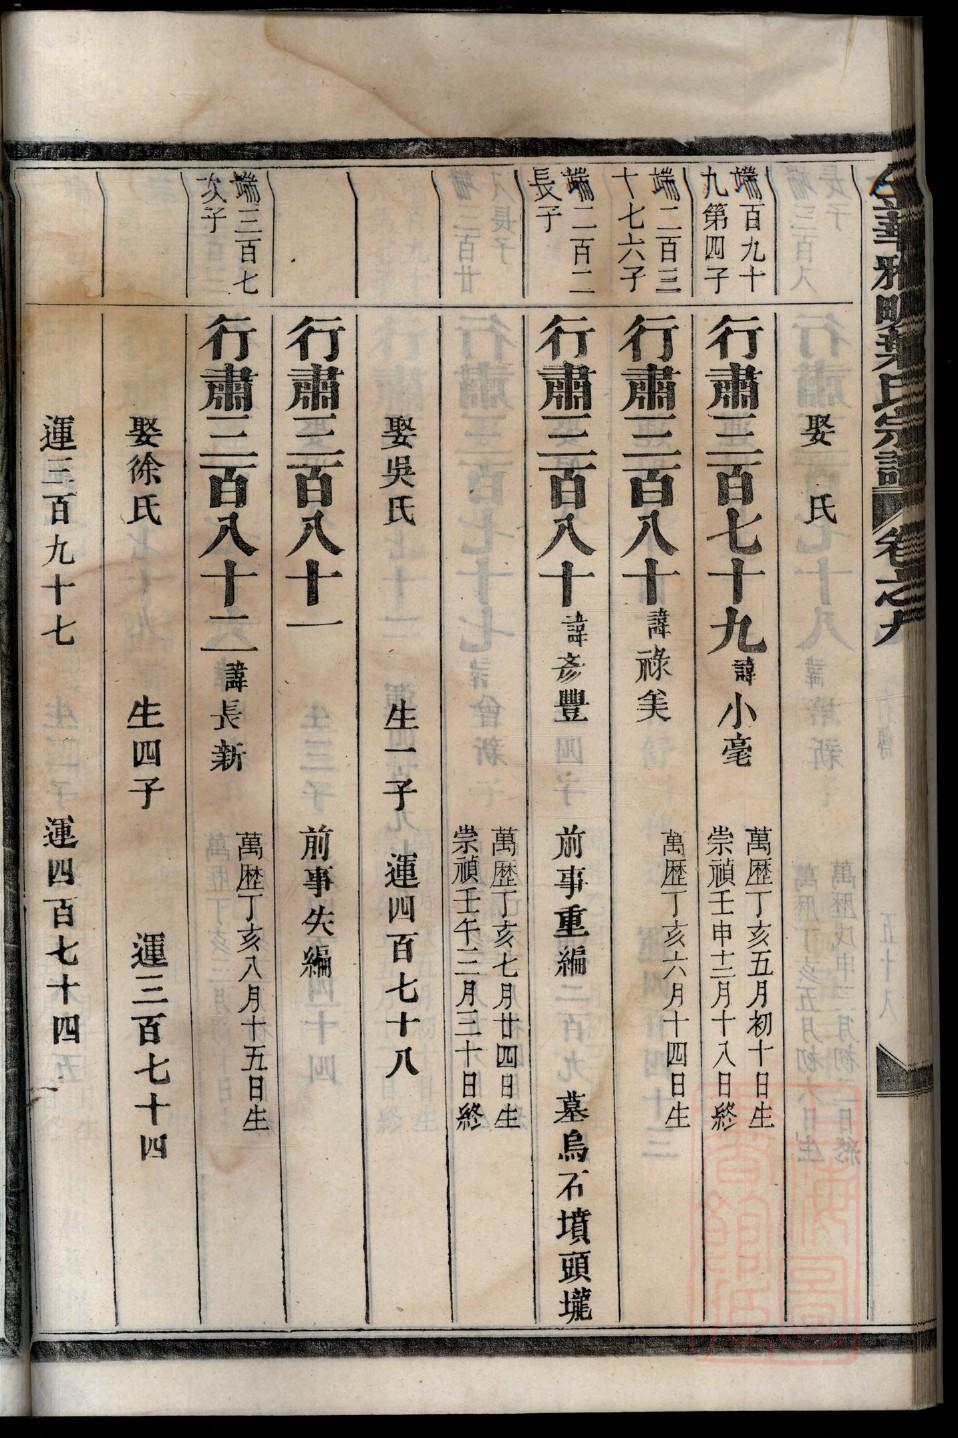 金華雅畈葉氏宗譜 卷之九
娶　氏
端百九十
九第四子
行肅三百七十九 諱小毫
萬歷丁亥五月初十日生
崇禎壬申十二月十八日終
端二百三
十七六子
行肅三百八十 諱祿美
萬歷丁亥六月十四日生
端二百二
長子
行肅三百八十 諱彥豐 前事重編 墓烏石墳頭壠
萬歷丁亥七月廿四日生
崇禎壬午二月三十日終
娶吳氏 生一子 運四百七十八
行肅三百八十一 前事失編
端三百七
次子
行肅三百八十二 諱長新
萬歷丁亥八月十五日生
娶徐氏 生四子 運三百七十四
運三百九十七 運四百七十四